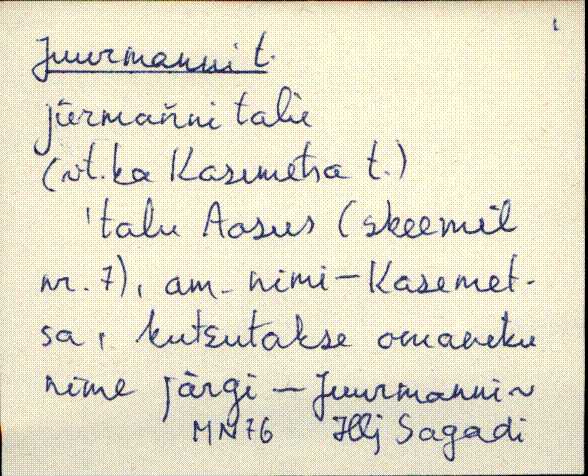 Juurmanni t.
jūrmańni talu
(vt. ka Kasemetsa t.)
'talu Aasus (skeemil
nr. 7), am. nimi – Kasemet-
sa, kutsutakse omaniku
nime järgi – Juurmanni ~
MN 76 Hlj Sagadi